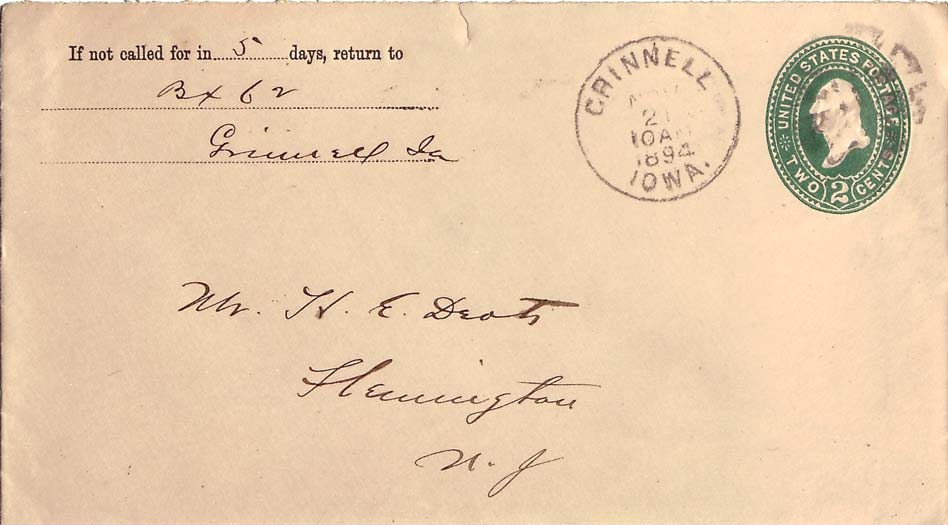 If not called for in 5 days, return to
Bx 62
Grinnell Ia
GRINNELL
21
10AM
1894
IOWA.
UNITED STATES POSTAGE
TWO 2 CENTS
Mr. H. E. Deats
Flemington
N. J